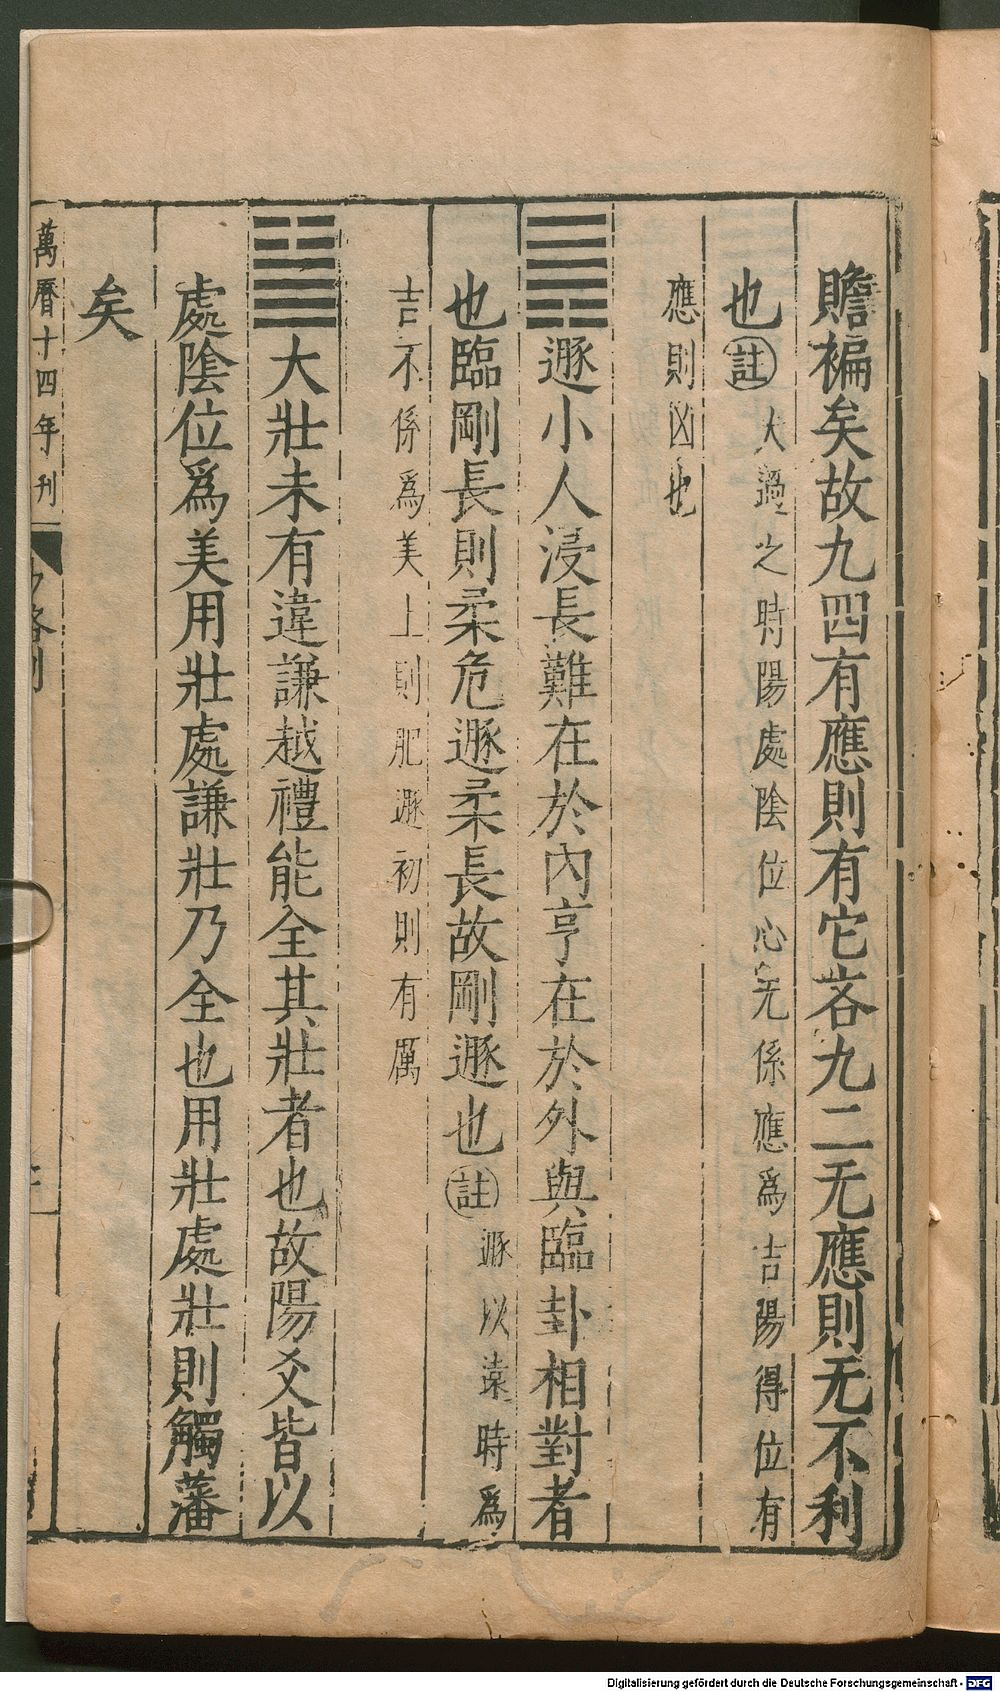 贍褊矣故九四有應則有它吝九二无應則无不利
也註大過之時陽處陰位心无係應爲吉陽得位有
應則凶也
䷠遯小人浸長難在於內亨在於外與臨卦相對者
也臨剛長則柔危遯柔長故剛遯也註遯以遠時爲
吉不係爲美上則肥遯初則有厲
䷡大壯未有違謙越禮能全其壯者也故陽爻皆以
處陰位爲美用壯處謙壯乃全也用壯處壯則觸藩
矣
萬曆十四年刊
Digitalisierung gefördert durch die Deutsche Forschungsgemeinschaft - DFG